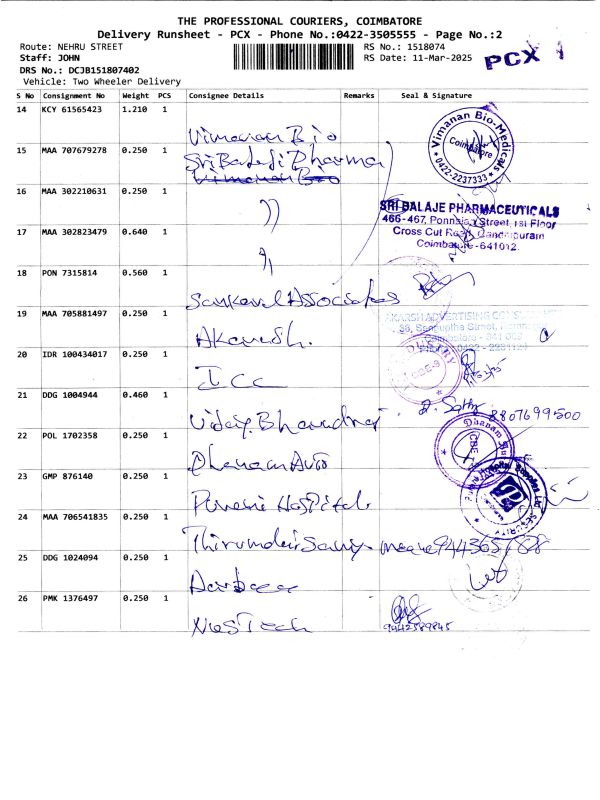 THE PROFESSIONAL COURIERS, COIMBATORE
Delivery Runsheet - PCX - Phone No.:0422-3505555 - Page No.:2
Route: NEHRU STREET RS No.: 1518074
Staff: JOHN RS Date: 11-Mar-2025
PCX
DRS No.: DCJB151807402
Vehicle: Two Wheeler Delivery
S No Consignment No Weight PCS Consignee Details Remarks Seal & Signature
14 KCY 61565423 1.210 1 Vimanan Bio
Vimanan Bio-Medicals
Coimbatore
0422-2237333
15 MAA 707679278 0.250 1 Sri Balaji Pharma
Vimanan Bio
16 MAA 302210631 0.250 1 ))
SRI BALAJE PHARMACEUTICALS
466-467, Street, Ist Floor
17 MAA 302823479 0.640 1
Cross Cut Road, Gandhipuram
Coimbatore-641012.
18 PON 7315814 0.560 1 Associates
19 MAA 705881497 0.250 1 Akarsh.
AKARSH ADVERTISING
20 IDR 100434017 0.250 1 Icc
21 DDG 1004944 0.460 1 Uday
8807699500
22 POL 1702358 0.250 1 Dhanam Auto
Dhanam
CBE
23 GMP 876140 0.250 1 Hospital
SECURITY
24 MAA 706541835 0.250 1
25 DDG 1024094 0.250 1
26 PMK 1376497 0.250 1 Tech
9442589845